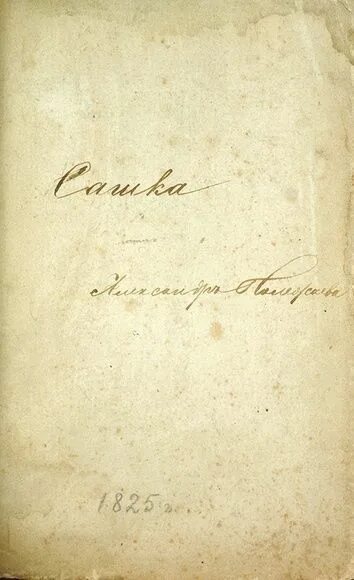 Сашка
Александръ Полежаевъ
1825 г.